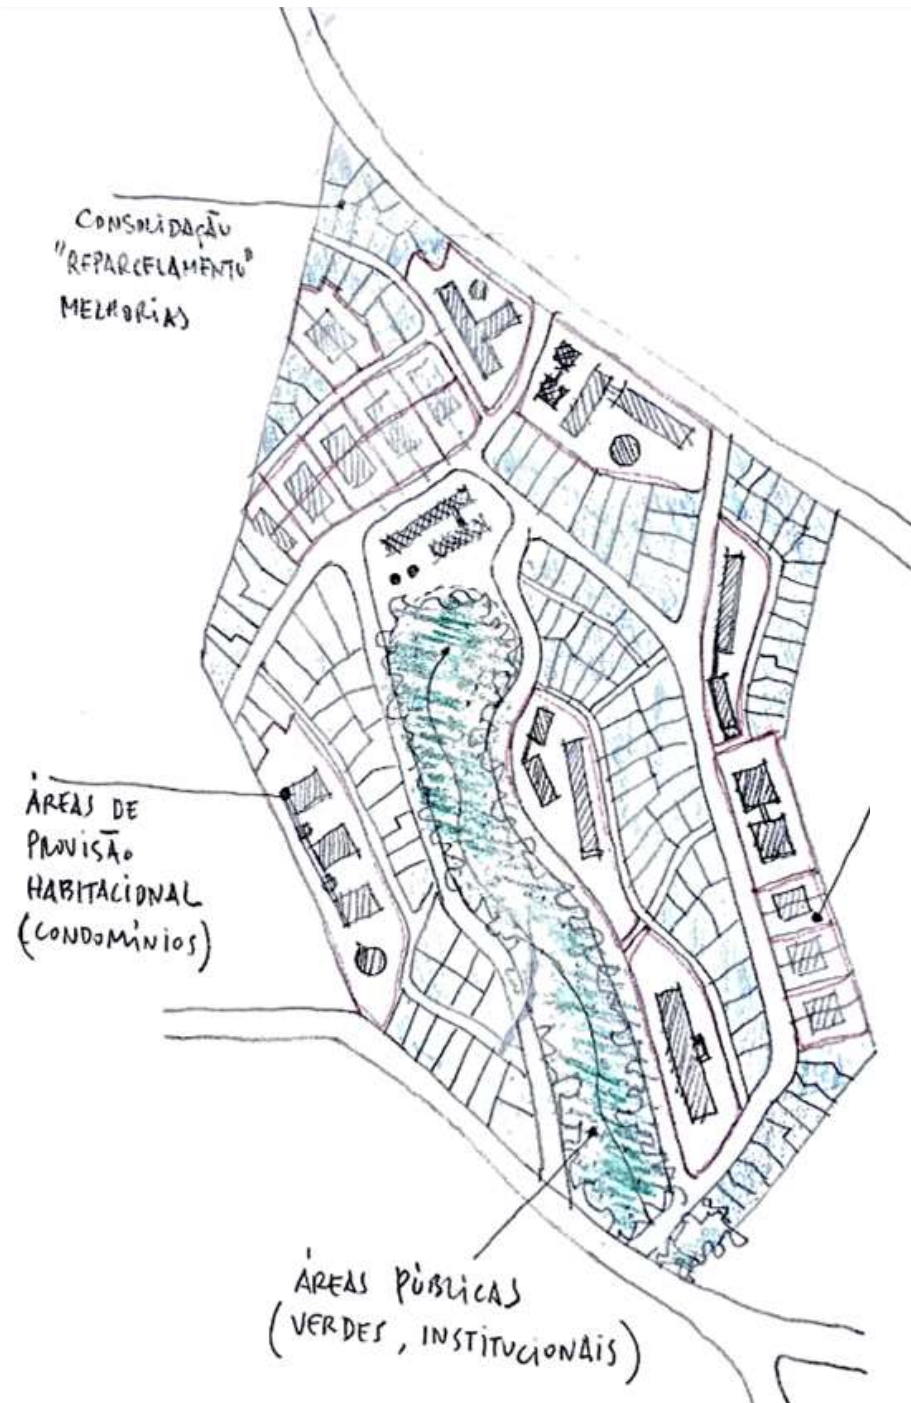 CONSOLIDAÇÃO
"REPARCELAMENTO"
MELHORIAS
ÁREAS DE
PROVISÃO
HABITACIONAL
(CONDOMÍNIOS)
ÁREAS PÚBLICAS
(VERDES, INSTITUCIONAIS)